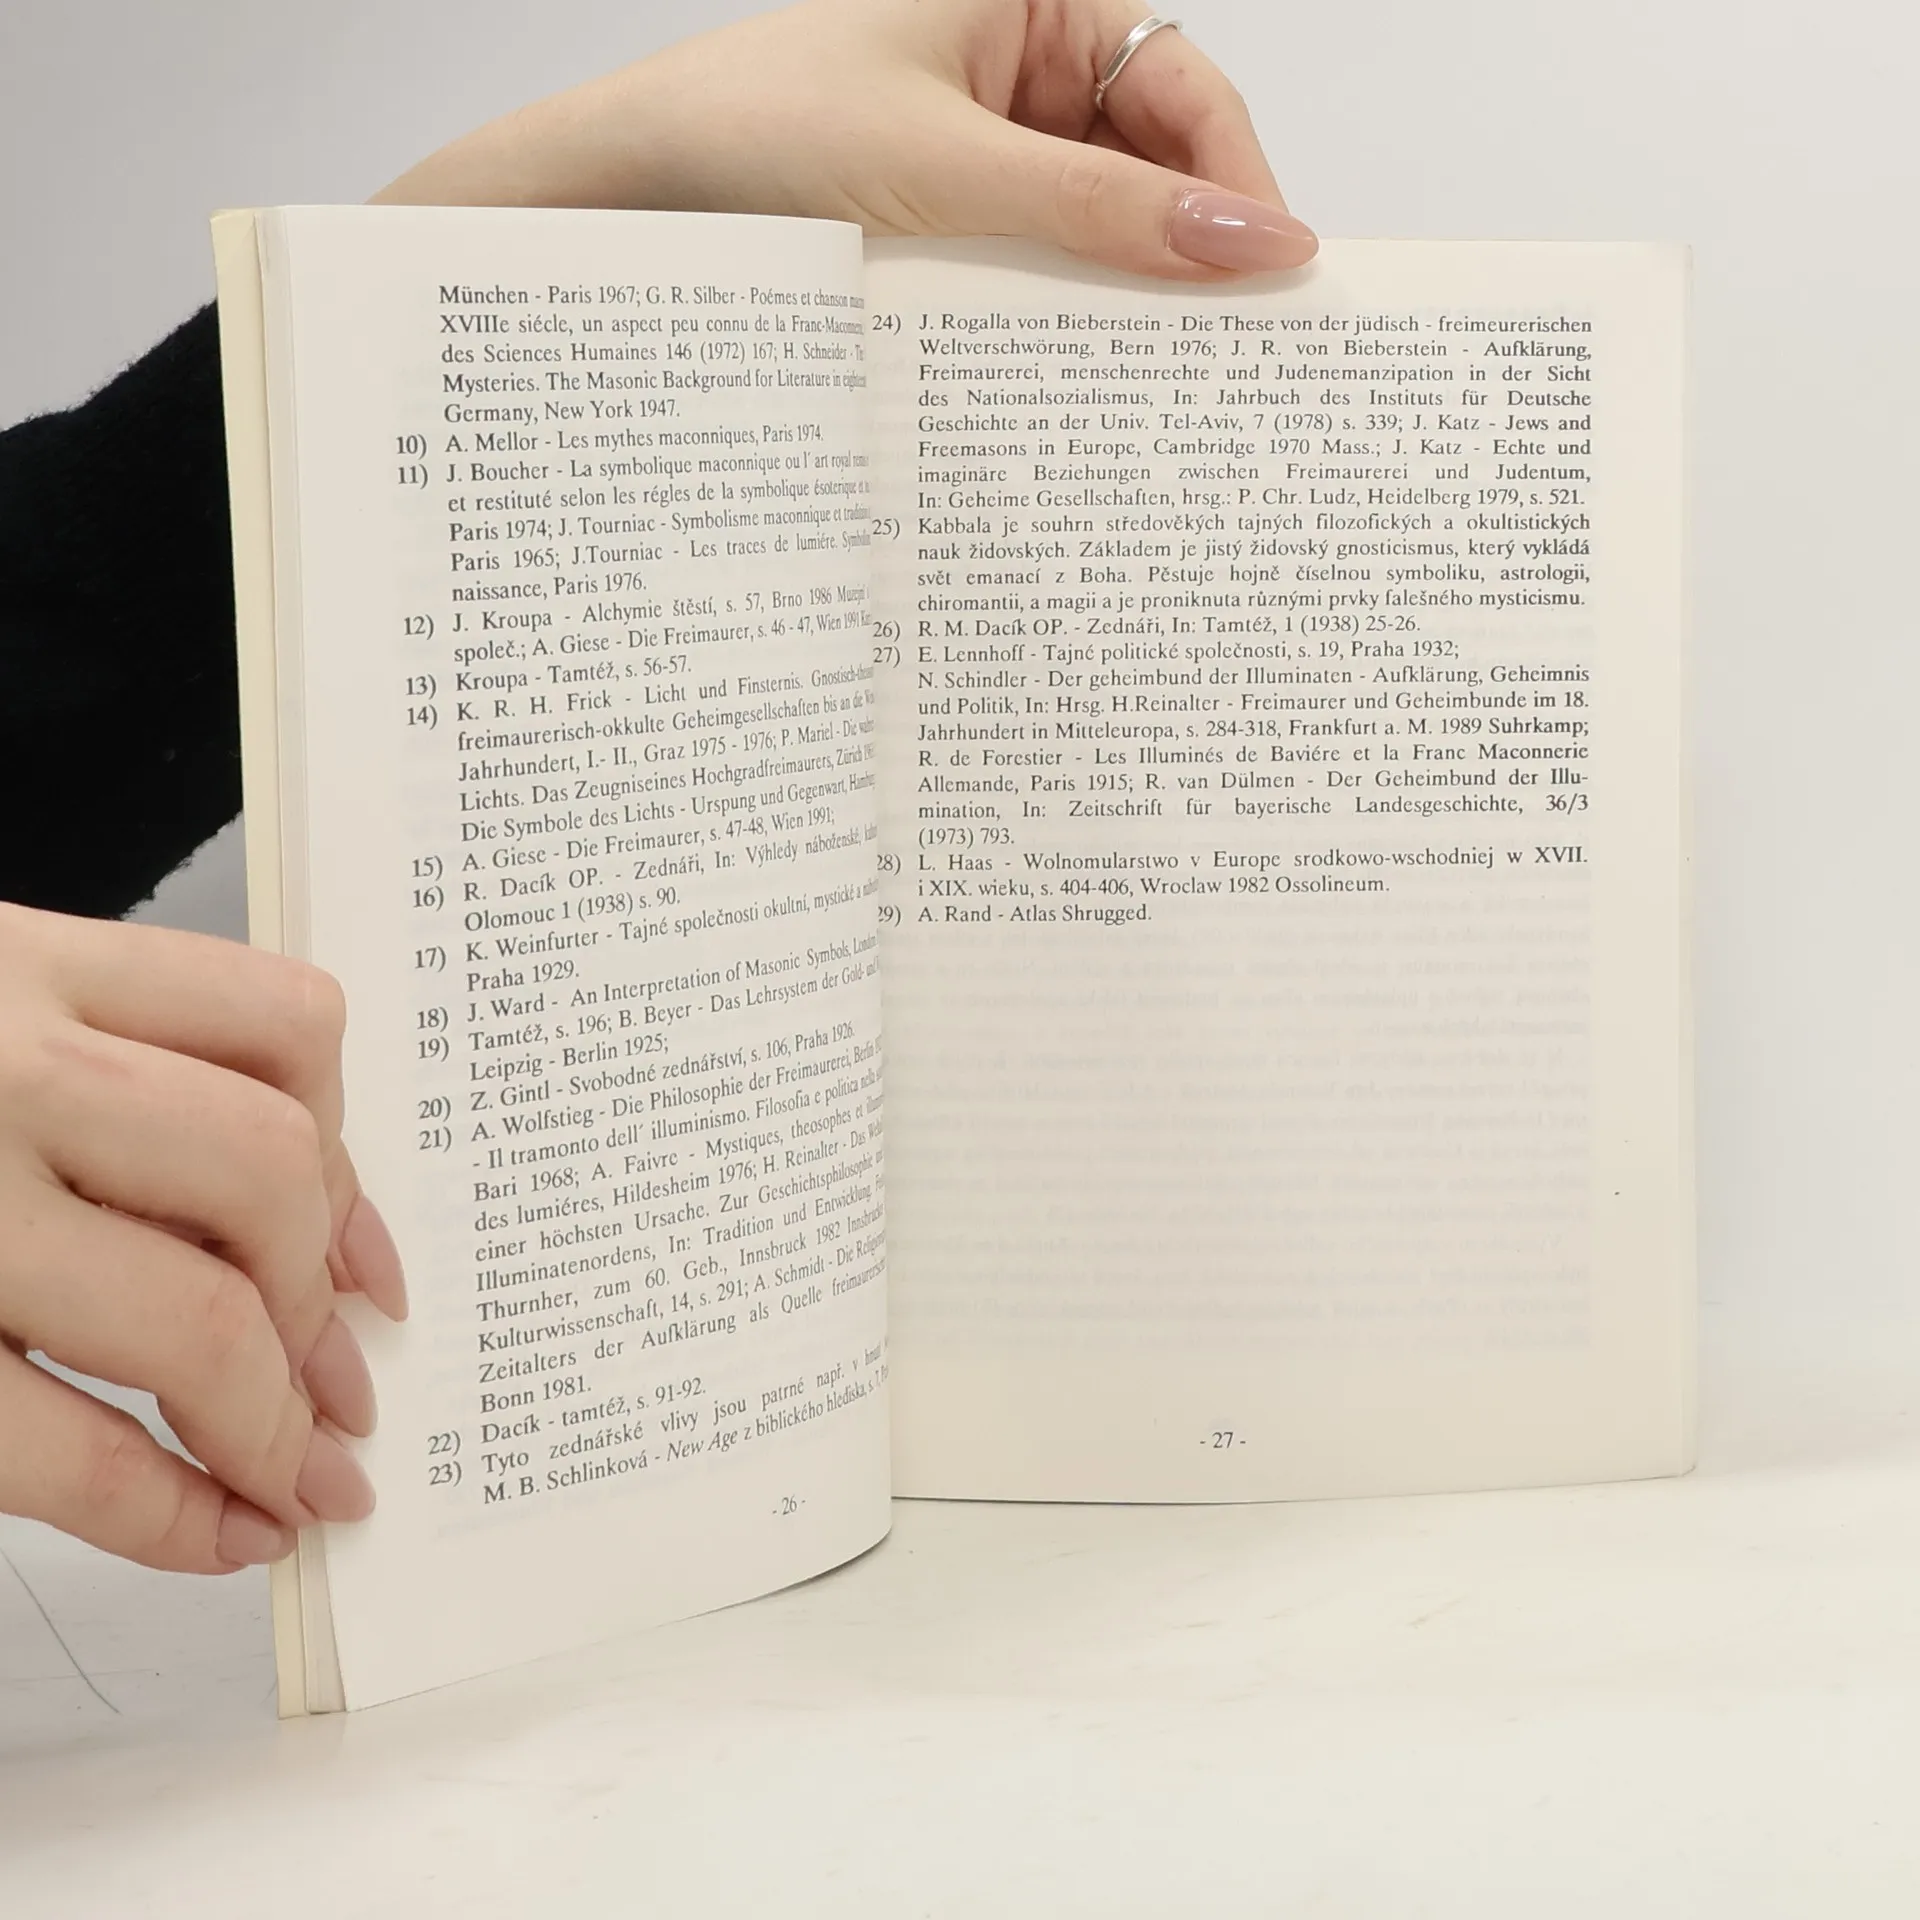 München - Paris 1967; G. R. Silber - Poémes et chanson
XVIIIe siécle, un aspect peu connu de la
des Sciences Humaines 146 (1972) 167; H. Schneider -
Mysteries. The Masonic Background for Literature in
Germany, New York 1947.
10) A. Mellor - Les mythes maconniques, Paris 1974.
11) J. Boucher - La symbolique maconnique ou l´ art royal
et restituté selon les régles de la symbolique ésoterique
Paris 1974; J. Tourniac - Symbolisme maconnique et
Paris 1965; J.Tourniac - Les traces de lumiére.
naissance, Paris 1976.
12) J. Kroupa - Alchymie štěstí, s. 57, Brno 1986 Muzejní
společ.; A. Giese - Die Freimaurer, s. 46 - 47, Wien 1991
13) Kroupa - Tamtéž, s. 56-57.
14) K. R. H. Frick - Licht und Finsternis.
freimaurerisch-okkulte Geheimgesellschaften bis an die
Jahrhundert, I.- II., Graz 1975 - 1976; P. Mariel - Die
Lichts. Das Zeugniseines Hochgradfreimaurers, Zürich
Die Symbole des Lichts - Urspung und Gegenwart,
15) A. Giese - Die Freimaurer, s. 47-48, Wien 1991;
16) R. Dacík OP. - Zednáři, In: Výhledy náboženské,
Olomouc 1 (1938) s. 90.
17) K. Weinfurter - Tajné společnosti okultní, mystické a
Praha 1929.
18) J. Ward - An Interpretation of Masonic Symbols, London
19) Tamtéž, s. 196; B. Beyer - Das Lehrsystem der Gold- und
Leipzig - Berlin 1925;
20) Z. Gintl - Svobodné zednářství, s. 106, Praha 1926.
21) A. Wolfstieg - Die Philosophie der Freimaurerei, Berlin
- Il tramonto dell´ illuminismo. Filosofia e politica nella
Bari 1968; A. Faivre - Mystiques, theosophes et
des lumiéres, Hildesheim 1976; H. Reinalter - Das
einer höchsten Ursache. Zur Geschichtsphilosophie
Illuminatenordens, In: Tradition und Entwicklung.
Thurnher, zum 60. Geb., Innsbruck 1982
Kulturwissenschaft, 14, s. 291; A. Schmidt - Die
Zeitalters der Aufklärung als Quelle
Bonn 1981.
22) Dacík - tamtéž, s. 91-92.
23) Tyto zednářské vlivy jsou patrné např. v
M. B. Schlinková - New Age z biblického hlediska, s. 7,
- 26 -
24) J. Rogalla von Bieberstein - Die These von der jüdisch - freimeurerischen
Weltverschwörung, Bern 1976; J. R. von Bieberstein - Aufklärung,
Freimaurerei, menschenrechte und Judenemanzipation in der Sicht
des Nationalsozialismus, In: Jahrbuch des Instituts für Deutsche
Geschichte an der Univ. Tel-Aviv, 7 (1978) s. 339; J. Katz - Jews and
Freemasons in Europe, Cambridge 1970 Mass.; J. Katz - Echte und
imaginäre Beziehungen zwischen Freimaurerei und Judentum,
In: Geheime Gesellschaften, hrsg.: P. Chr. Ludz, Heidelberg 1979, s. 521.
25) Kabbala je souhrn středověkých tajných filozofických a okultistických
nauk židovských. Základem je jistý židovský gnosticismus, který vykládá
svět emanací z Boha. Pěstuje hojně číselnou symboliku, astrologii,
chiromantii, a magii a je proniknuta různými prvky falešného mysticismu.
26) R. M. Dacík OP. - Zednáři, In: Tamtéž, 1 (1938) 25-26.
27) E. Lennhoff - Tajné politické společnosti, s. 19, Praha 1932;
N. Schindler - Der geheimbund der Illuminaten - Aufklärung, Geheimnis
und Politik, In: Hrsg. H.Reinalter - Freimaurer und Geheimbunde im 18.
Jahrhundert in Mitteleuropa, s. 284-318, Frankfurt a. M. 1989 Suhrkamp;
R. de Forestier - Les Illuminés de Baviére et la Franc Maconnerie
Allemande, Paris 1915; R. van Dülmen - Der Geheimbund der Illu-
mination, In: Zeitschrift für bayerische Landesgeschichte, 36/3
(1973) 793.
28) L. Haas - Wolnomularstwo v Europe srodkowo-wschodniej w XVII.
i XIX. wieku, s. 404-406, Wroclaw 1982 Ossolineum.
29) A. Rand - Atlas Shrugged.
- 27 -